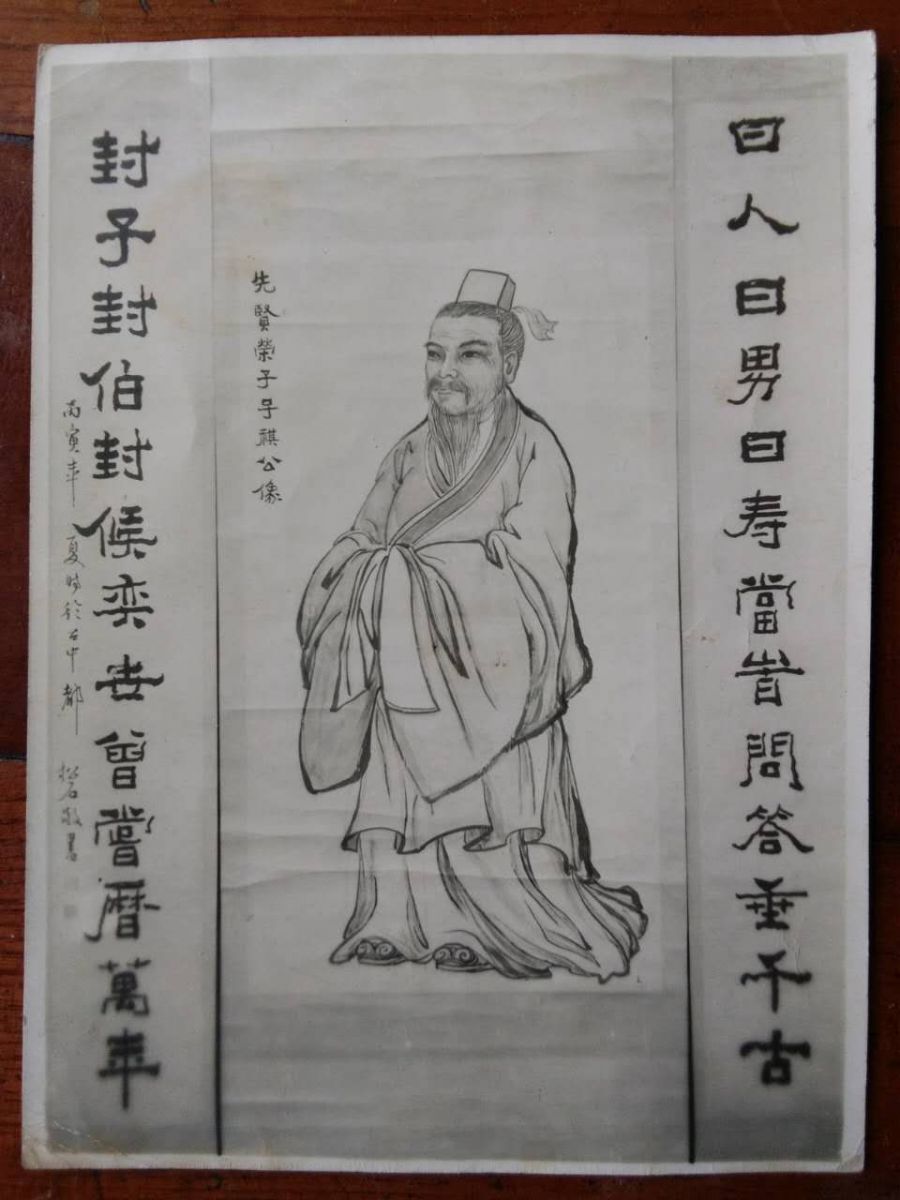 曰人曰男曰寿當旹問答垂千古
先賢榮子子祺公像
封子封伯封候奕世曾嘗曆萬年
丙寅年 夏時於古中都 松石敬書